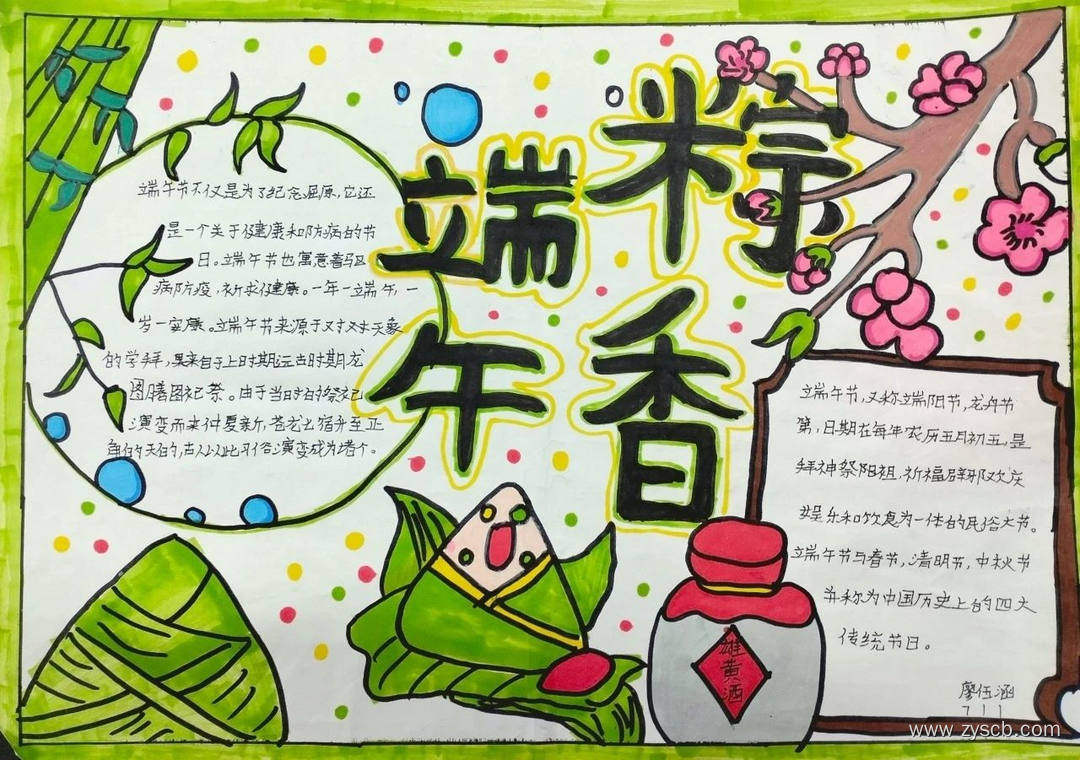 粽香
端午
端午节不仅是为了纪念屈原,它还
是一个关于健康和防病的节
日。端午节也寓意着驱
病防疫,祈求健康。一年一端午,一
岁一安康。端午节来源于对天象
的学拜,果来自于上时期远古时期龙
图腾图祀祭。由于当时的祭祀
演变而来仲夏新,苍龙七宿升至正
的天的,古人以此习俗演变成为
端午节,又称端阳节,龙舟节
第,日期在每年农历五月初五,是
拜神祭阳祖,祈福辟邪欢庆
娱乐和饮食为一体的民俗大节。
端午节与春节,清明节,中秋节
并称为中国历史上的四大
传统节日。
廖伍涵
711
雄黄酒
www.zyscb.com